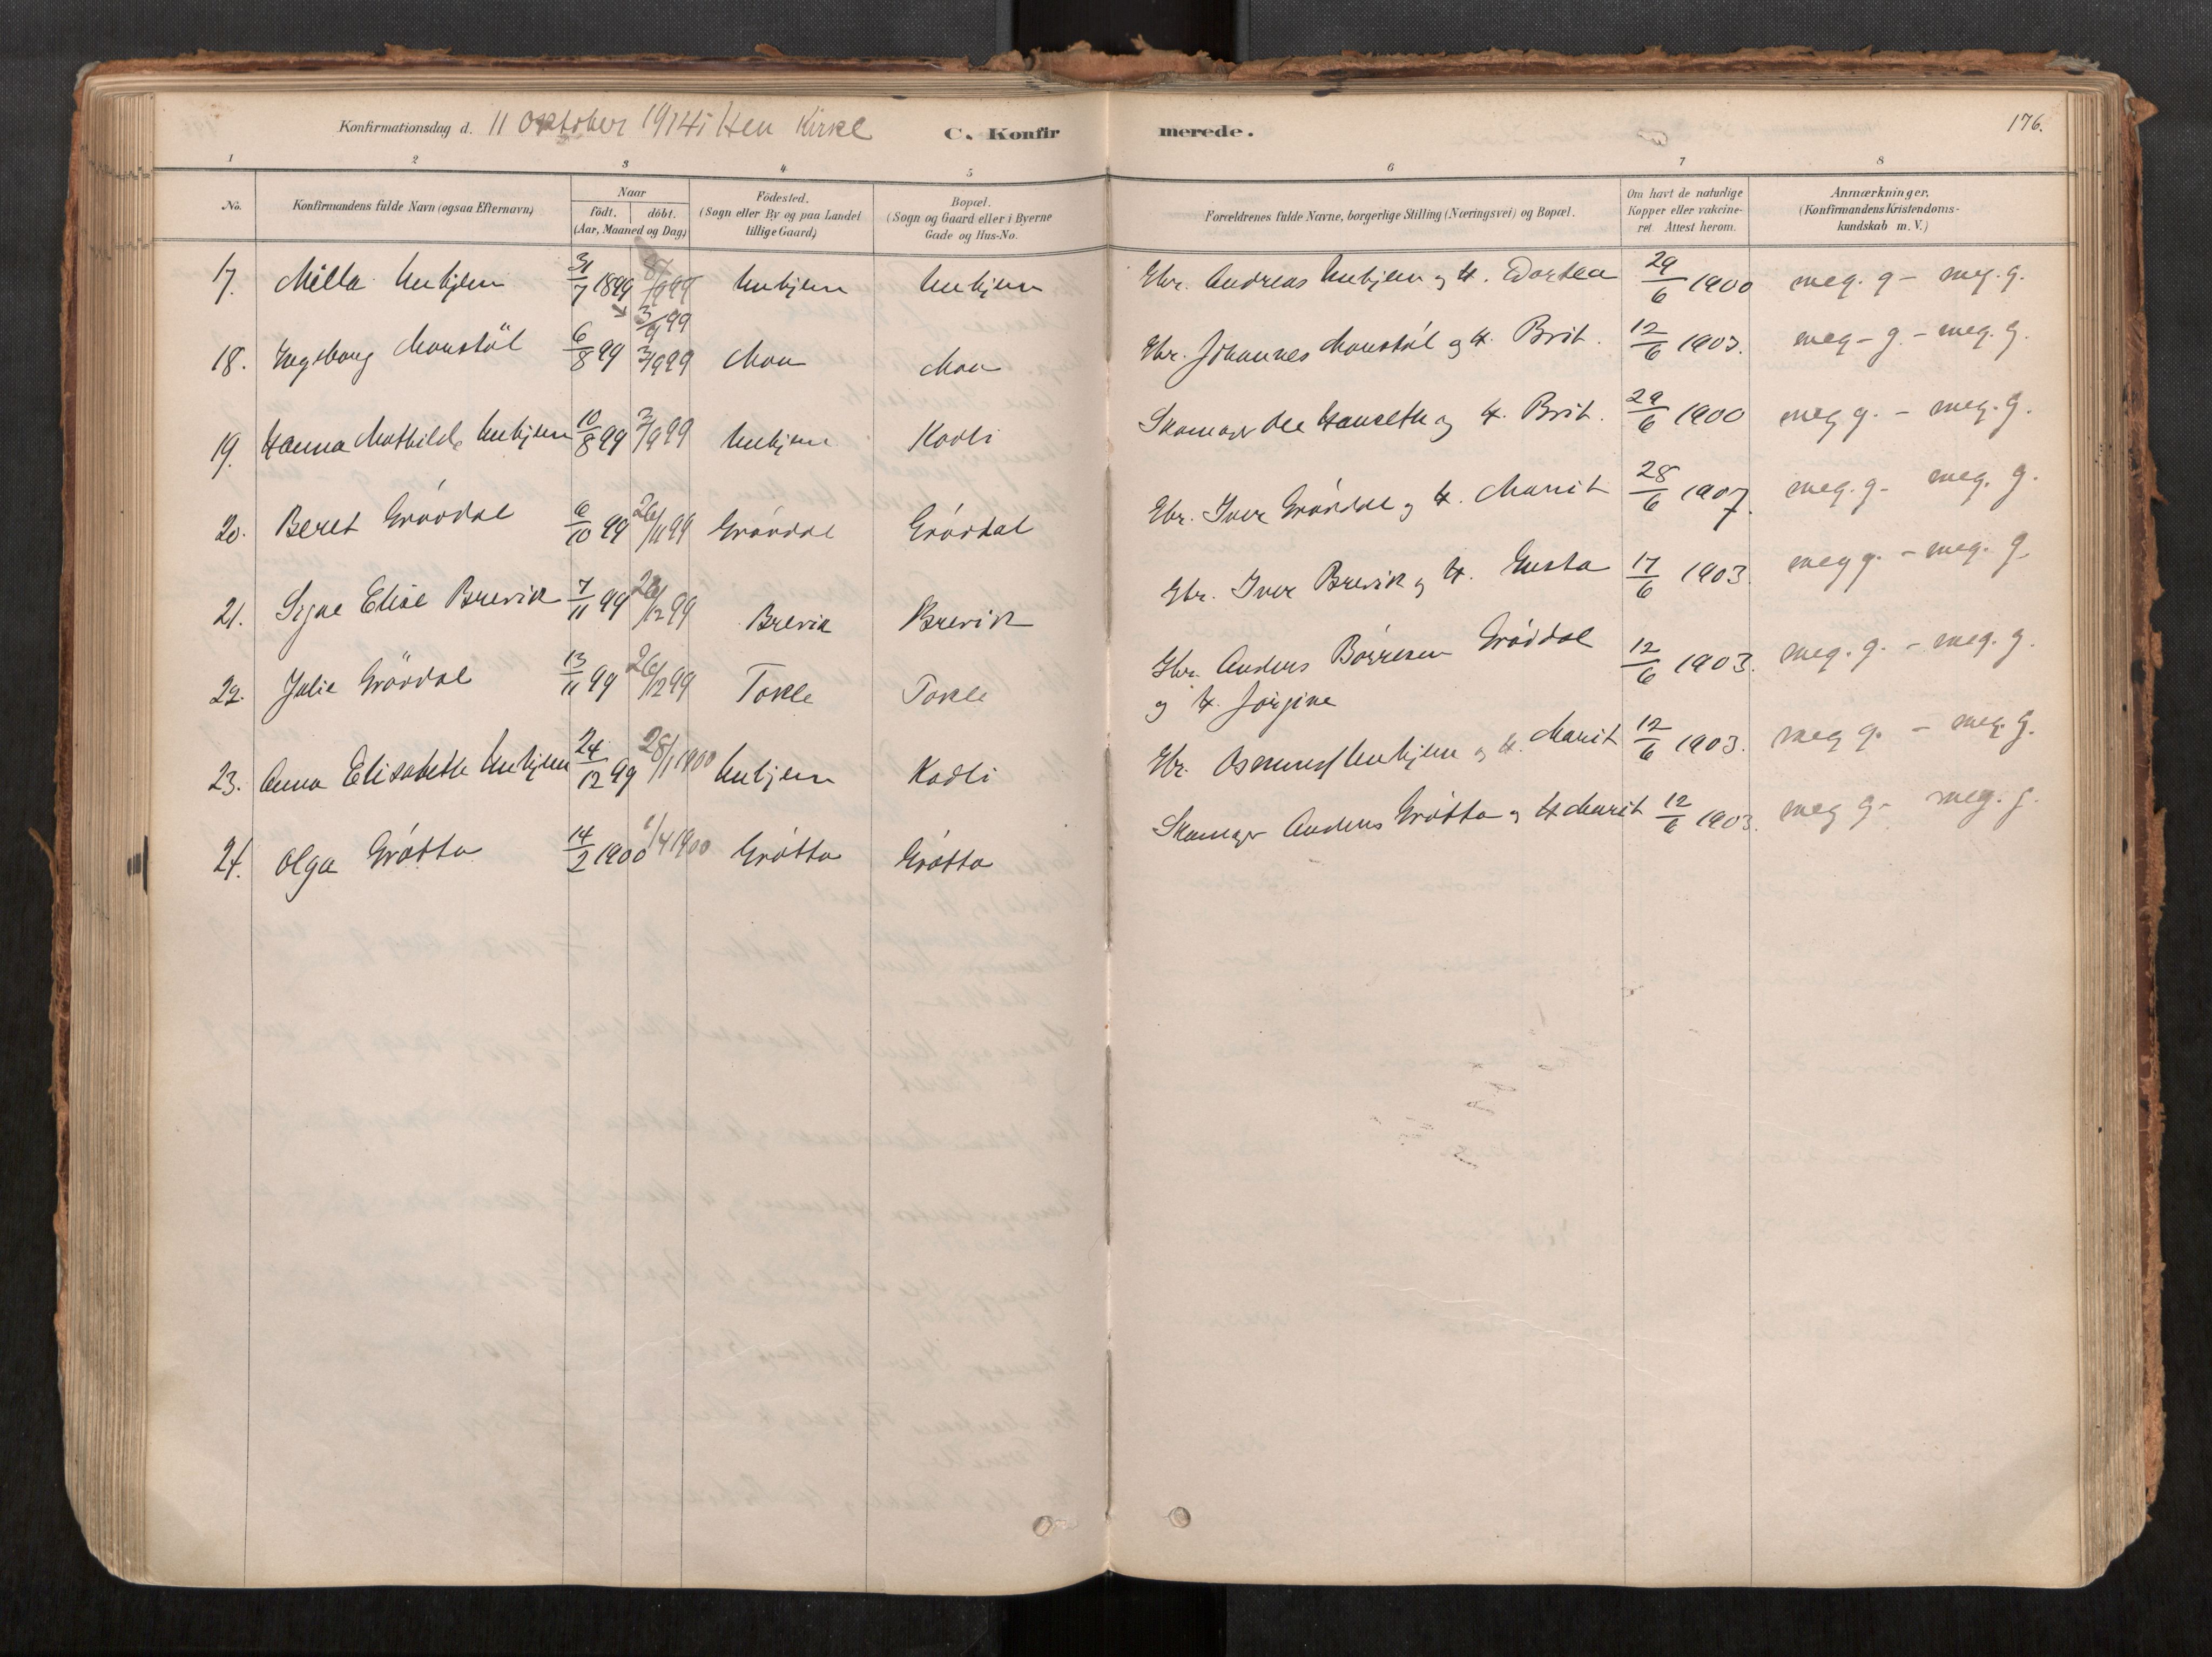 Konfirmationsdag d. 11 Oktober 1914 i Hen Kirke C. Konfirmerede. 176.
1 2 3 4 5 6 7 8
No. Konfirmandens fulde Navn (ogsaa Efternavn) Naar födt. döbt. (Aar, Maaned og Dag) Födested. (Sogn eller By og paa Landet tillige Gaard) Bopæl. (Sogn og Gaard eller i Byerne Gade og Hus-No. Forældrenes fulde Navne, borgerlige Stilling (Næringsvei) og Bopæl. Om havt de naturlige Kopper eller vakcineret. Attest herom. Anmærkninger. (Konfirmandens Kristendomskundskab m. V.)
17. Milla Unhjem 31/7 1899 3/9 99 Unhjem Unhjem Gbr. Andreas Unhjem og H. Dortea 29/6 1900 meg. g - meg. g.
18. Ingeborg Monstøl 6/8 99 3/9 99 Moa Moa Gbr. Johannes Monstøl og H. Brit. 12/6 1903. meg - g - meg. g.
19. Hanna Mathilde Unhjem 10/8 99 3/9 99 Unhjem Kavli Skomager Ole Hanseth og H. Brit. 29/6 1900 meg g. - meg. g.
20. Beret Grøvdal 6/10 99 26/11 99 Grøvdal Grøvdal Gbr. Iver Grøvdal og H. Marit 28/6 1907. meg. g - meg. g.
21. Signe Elise Brevik 7/11 99 26/12 99 Brevik Brevik Gbr. Iver Brevik og H. Gusta 17/6 1903. meg g. - meg. g.
22. Julie Grövdal 13/11 99 26/12 99 Tokle Tokle Gbr. Anders Børresen Grøvdal 12/6 1903. meg. g. - meg. g.
og H. Jørgine
23. Anna Elisabeth Unhjem 24/12 99 28/1 1900 Unhjem Kavli Gbr. Osmund Unhjem og H. Marit 12/6 1903. meg g. - meg. g.
24. Olga Grøtta 14/2 1900 1/4 1900 Grøtta Grøtta Skomager Anders Grøtta og H Marit 12/6 1903. meg g - meg. g.